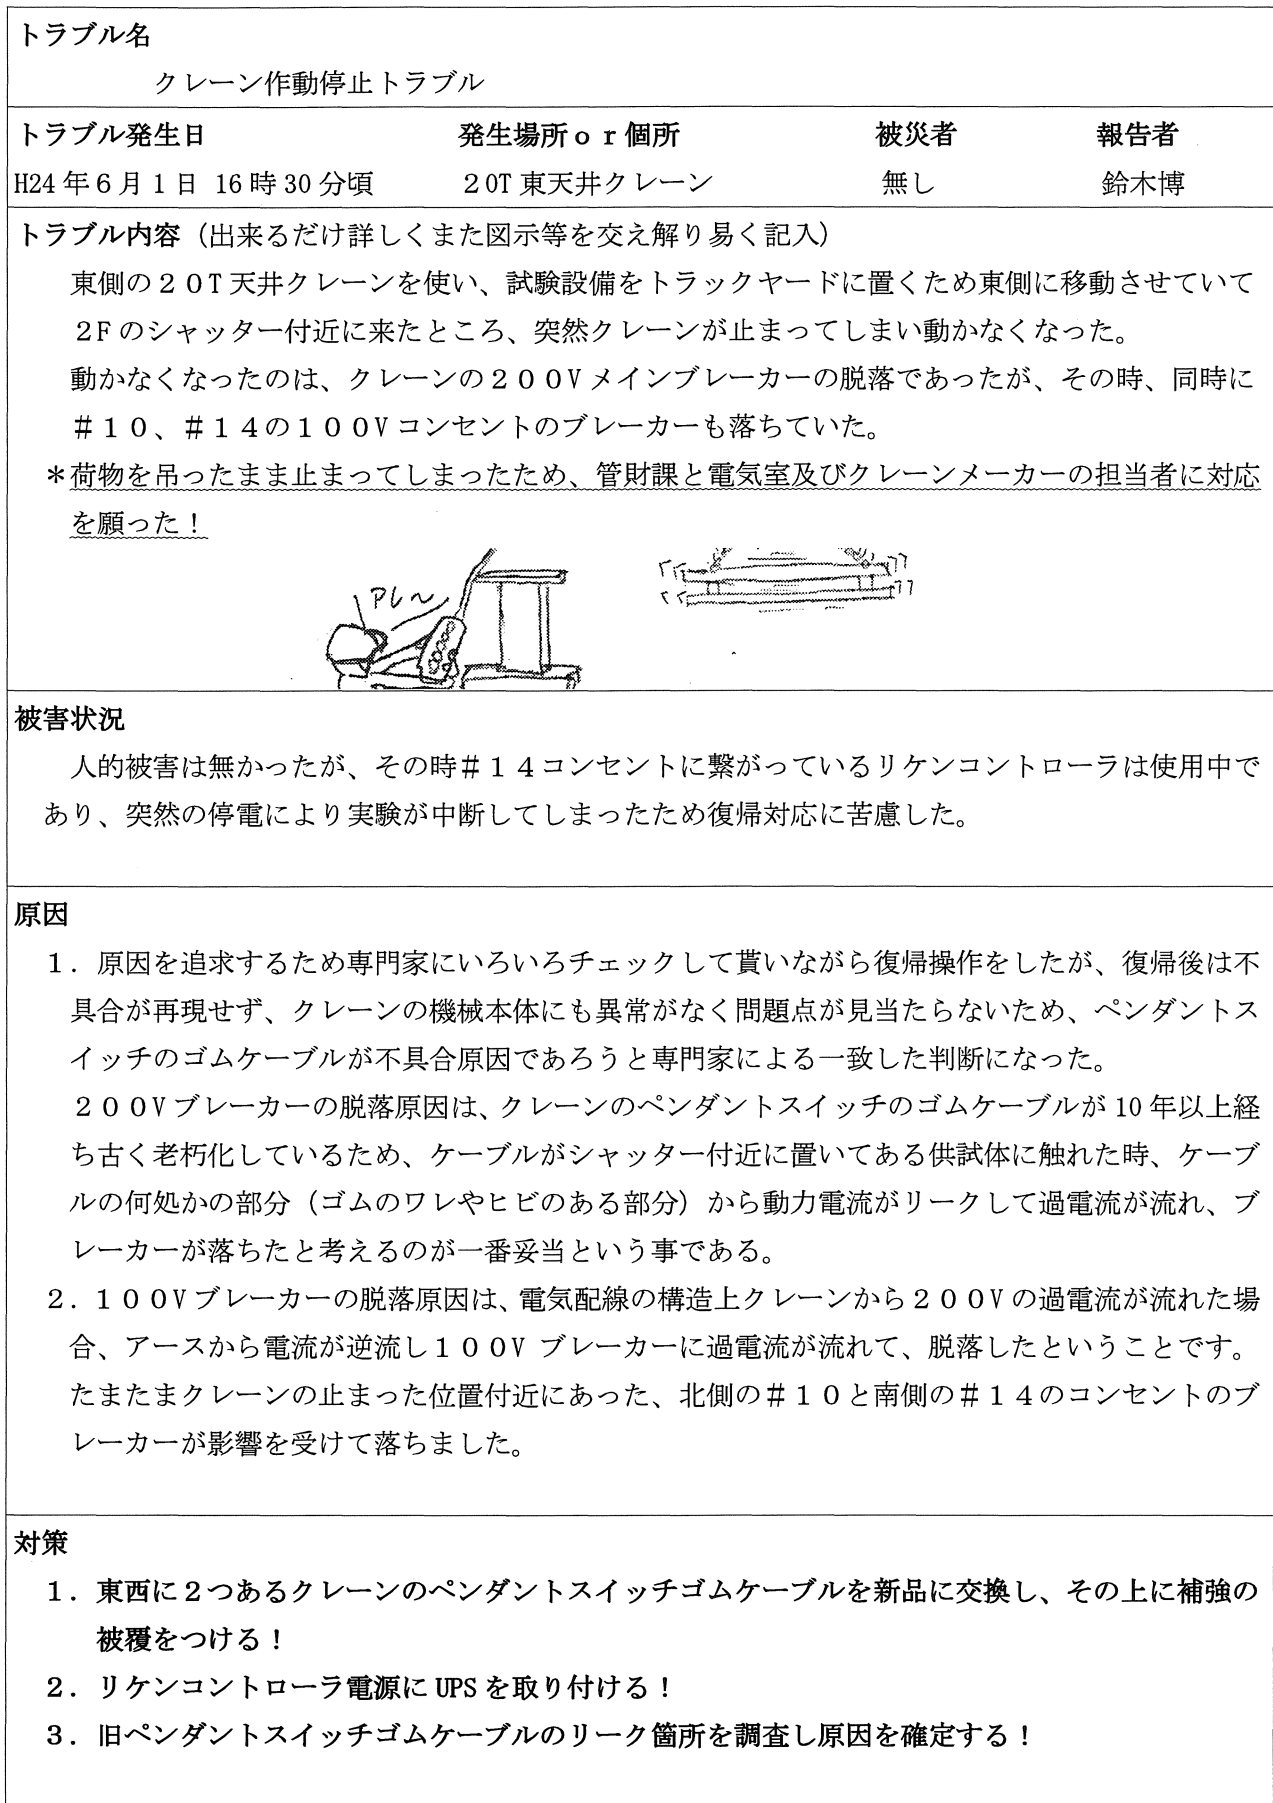 トラブル名
クレーン作動停止トラブル
トラブル発生日 発生場所or個所 被災者 報告者
H24年6月1日 16時30分頃 20T東天井クレーン 無し 鈴木博
トラブル内容（出来るだけ詳しくまた図示等を交え解り易く記入）
東側の20T天井クレーンを使い、試験設備をトラックヤードに置くため東側に移動させていて
2Fのシャッター付近に来たところ、突然クレーンが止まってしまい動かなくなった。
動かなくなったのは、クレーンの200Vメインブレーカーの脱落であったが、その時、同時に
＃10、＃14の100Vコンセントのブレーカーも落ちていた。
＊荷物を吊ったまま止まってしまったため、管財課と電気室及びクレーンメーカーの担当者に対応
を願った！
アレ～
被害状況
人的被害は無かったが、その時＃14コンセントに繋がっているリケンコントローラは使用中で
あり、突然の停電により実験が中断してしまったため復帰対応に苦慮した。
原因
1．原因を追求するため専門家にいろいろチェックして貰いながら復帰操作をしたが、復帰後は不
具合が再現せず、クレーンの機械本体にも異常がなく問題点が見当たらないため、ペンダントス
イッチのゴムケーブルが不具合原因であろうと専門家による一致した判断になった。
200Vブレーカーの脱落原因は、クレーンのペンダントスイッチのゴムケーブルが10年以上経
ち古く老朽化しているため、ケーブルがシャッター付近に置いてある供試体に触れた時、ケーブ
ルの何処かの部分（ゴムのワレやヒビのある部分）から動力電流がリークして過電流が流れ、ブ
レーカーが落ちたと考えるのが一番妥当という事である。
2．100Vブレーカーの脱落原因は、電気配線の構造上クレーンから200Vの過電流が流れた場
合、アースから電流が逆流し100V ブレーカーに過電流が流れて、脱落したということです。
たまたまクレーンの止まった位置付近にあった、北側の＃10と南側の＃14のコンセントのブ
レーカーが影響を受けて落ちました。
対策
1．東西に2つあるクレーンのペンダントスイッチゴムケーブルを新品に交換し、その上に補強の
被覆をつける！
2．リケンコントローラ電源にUPSを取り付ける！
3．旧ペンダントスイッチゴムケーブルのリーク箇所を調査し原因を確定する！